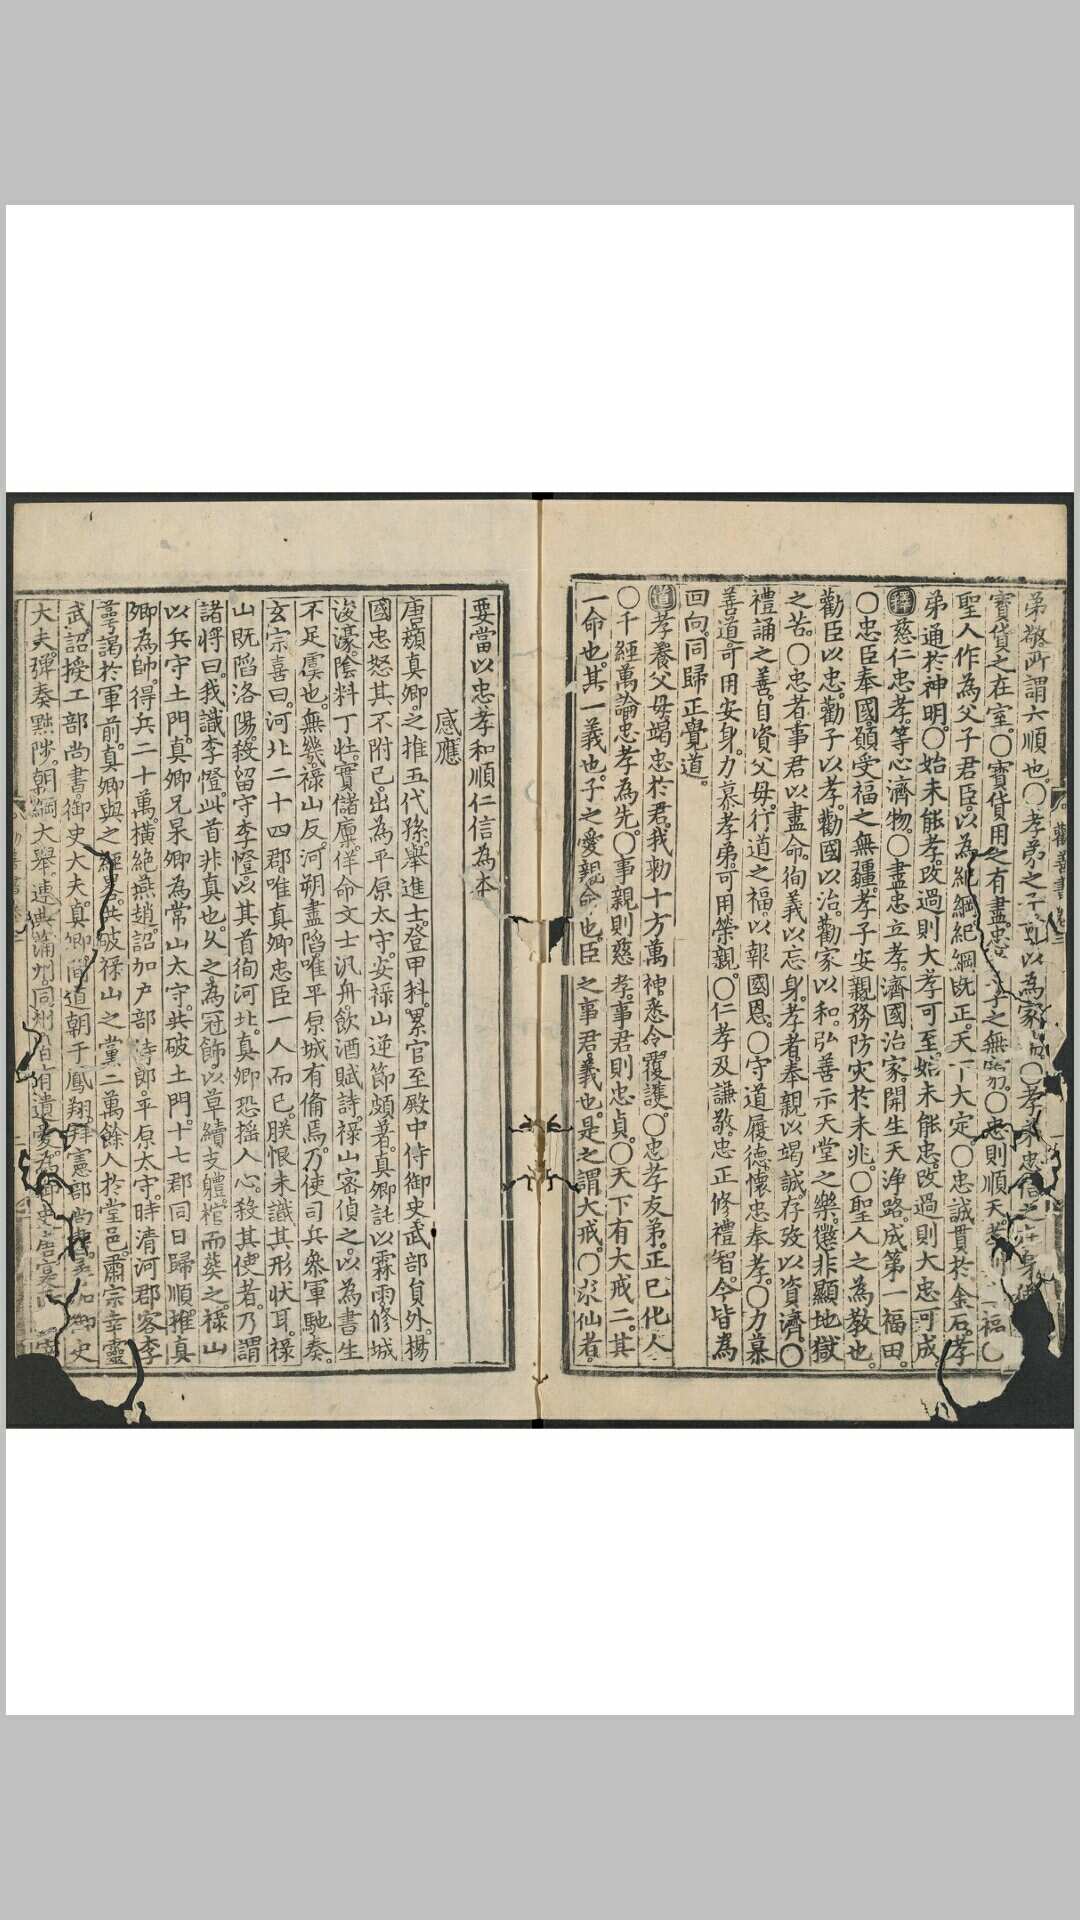 弟敬所謂六順也○孝弟之不亂以為家
寳貨之在室○寳貨用之有盡忠孝之無窮○忠則順天孝
聖人作為父子君臣以為紀綱紀綱既正天下大定○忠誠貫於金石孝
弟通於神明○始未能孝改過則大孝可至始未能忠改過則大忠可成
釋慈仁忠孝等心濟物○盡忠立孝濟國治家開生天淨路成第一福田
○忠臣奉國願受福之無疆孝子安親務防灾於未兆○聖人之為教也
勸臣以忠勸子以孝勸國以治勸家以和弘善示天堂之樂懲非顯地獄
之苦○忠者事君以盡命徇義以忘身孝者奉親以竭誠存歿以資濟○
禮誦之善自資父母行道之福以報國恩○守道履德懷忠奉孝○力慕
善道可用安身力慕孝弟可用榮親○仁孝及謙敬忠正修禮智今皆為
回向同歸正覺道
道孝養父母竭忠於君我勑十方萬神悉令覆護○忠孝友弟正已化人
○千經萬論忠孝為先○事親則慈孝事君則忠貞○天下有大戒二其
一命也其一義也子之愛親命也臣之事君義也是之謂大戒○求仙者
要當以忠孝和順仁信為本
感應
唐顏真卿之推五代孫舉進士登甲科累官至殿中侍御史武部負外楊
國忠怒其不附已出為平原太守安祿山逆節頗著真卿託以霖雨修城
浚濠陰料丁壮實儲廩佯命文士汎舟飲酒賦詩祿山密偵之以為書生
不足虞也無幾祿山反河朔盡陷唯平原城有備焉乃使司兵叅軍馳奏
玄宗喜曰河北二十四郡唯真卿忠臣一人而已朕恨未識其形状耳祿
山既陷洛陽殺留守李憕以其首徇河北真卿恐揺人心殺其使者乃謂
諸将曰我識李憕此首非真也久之為冠飾以草續支軆棺而葬之祿山
以兵守土門真卿兄杲卿為常山太守共破土門十七郡同日歸順推真
卿為帥得兵二十萬橫絶燕趙詔加户部侍郎平原太守時清河郡客李
萼謁於軍前真卿與之經畧共破祿山之黨二萬餘人於堂邑肅宗幸靈
武詔授工部尚書御史大夫真卿間道朝于鳳翔拜憲部尚書加御史
大夫彈奏黜陟朝綱大舉連典蒲州同州皆有遺愛為御史唐